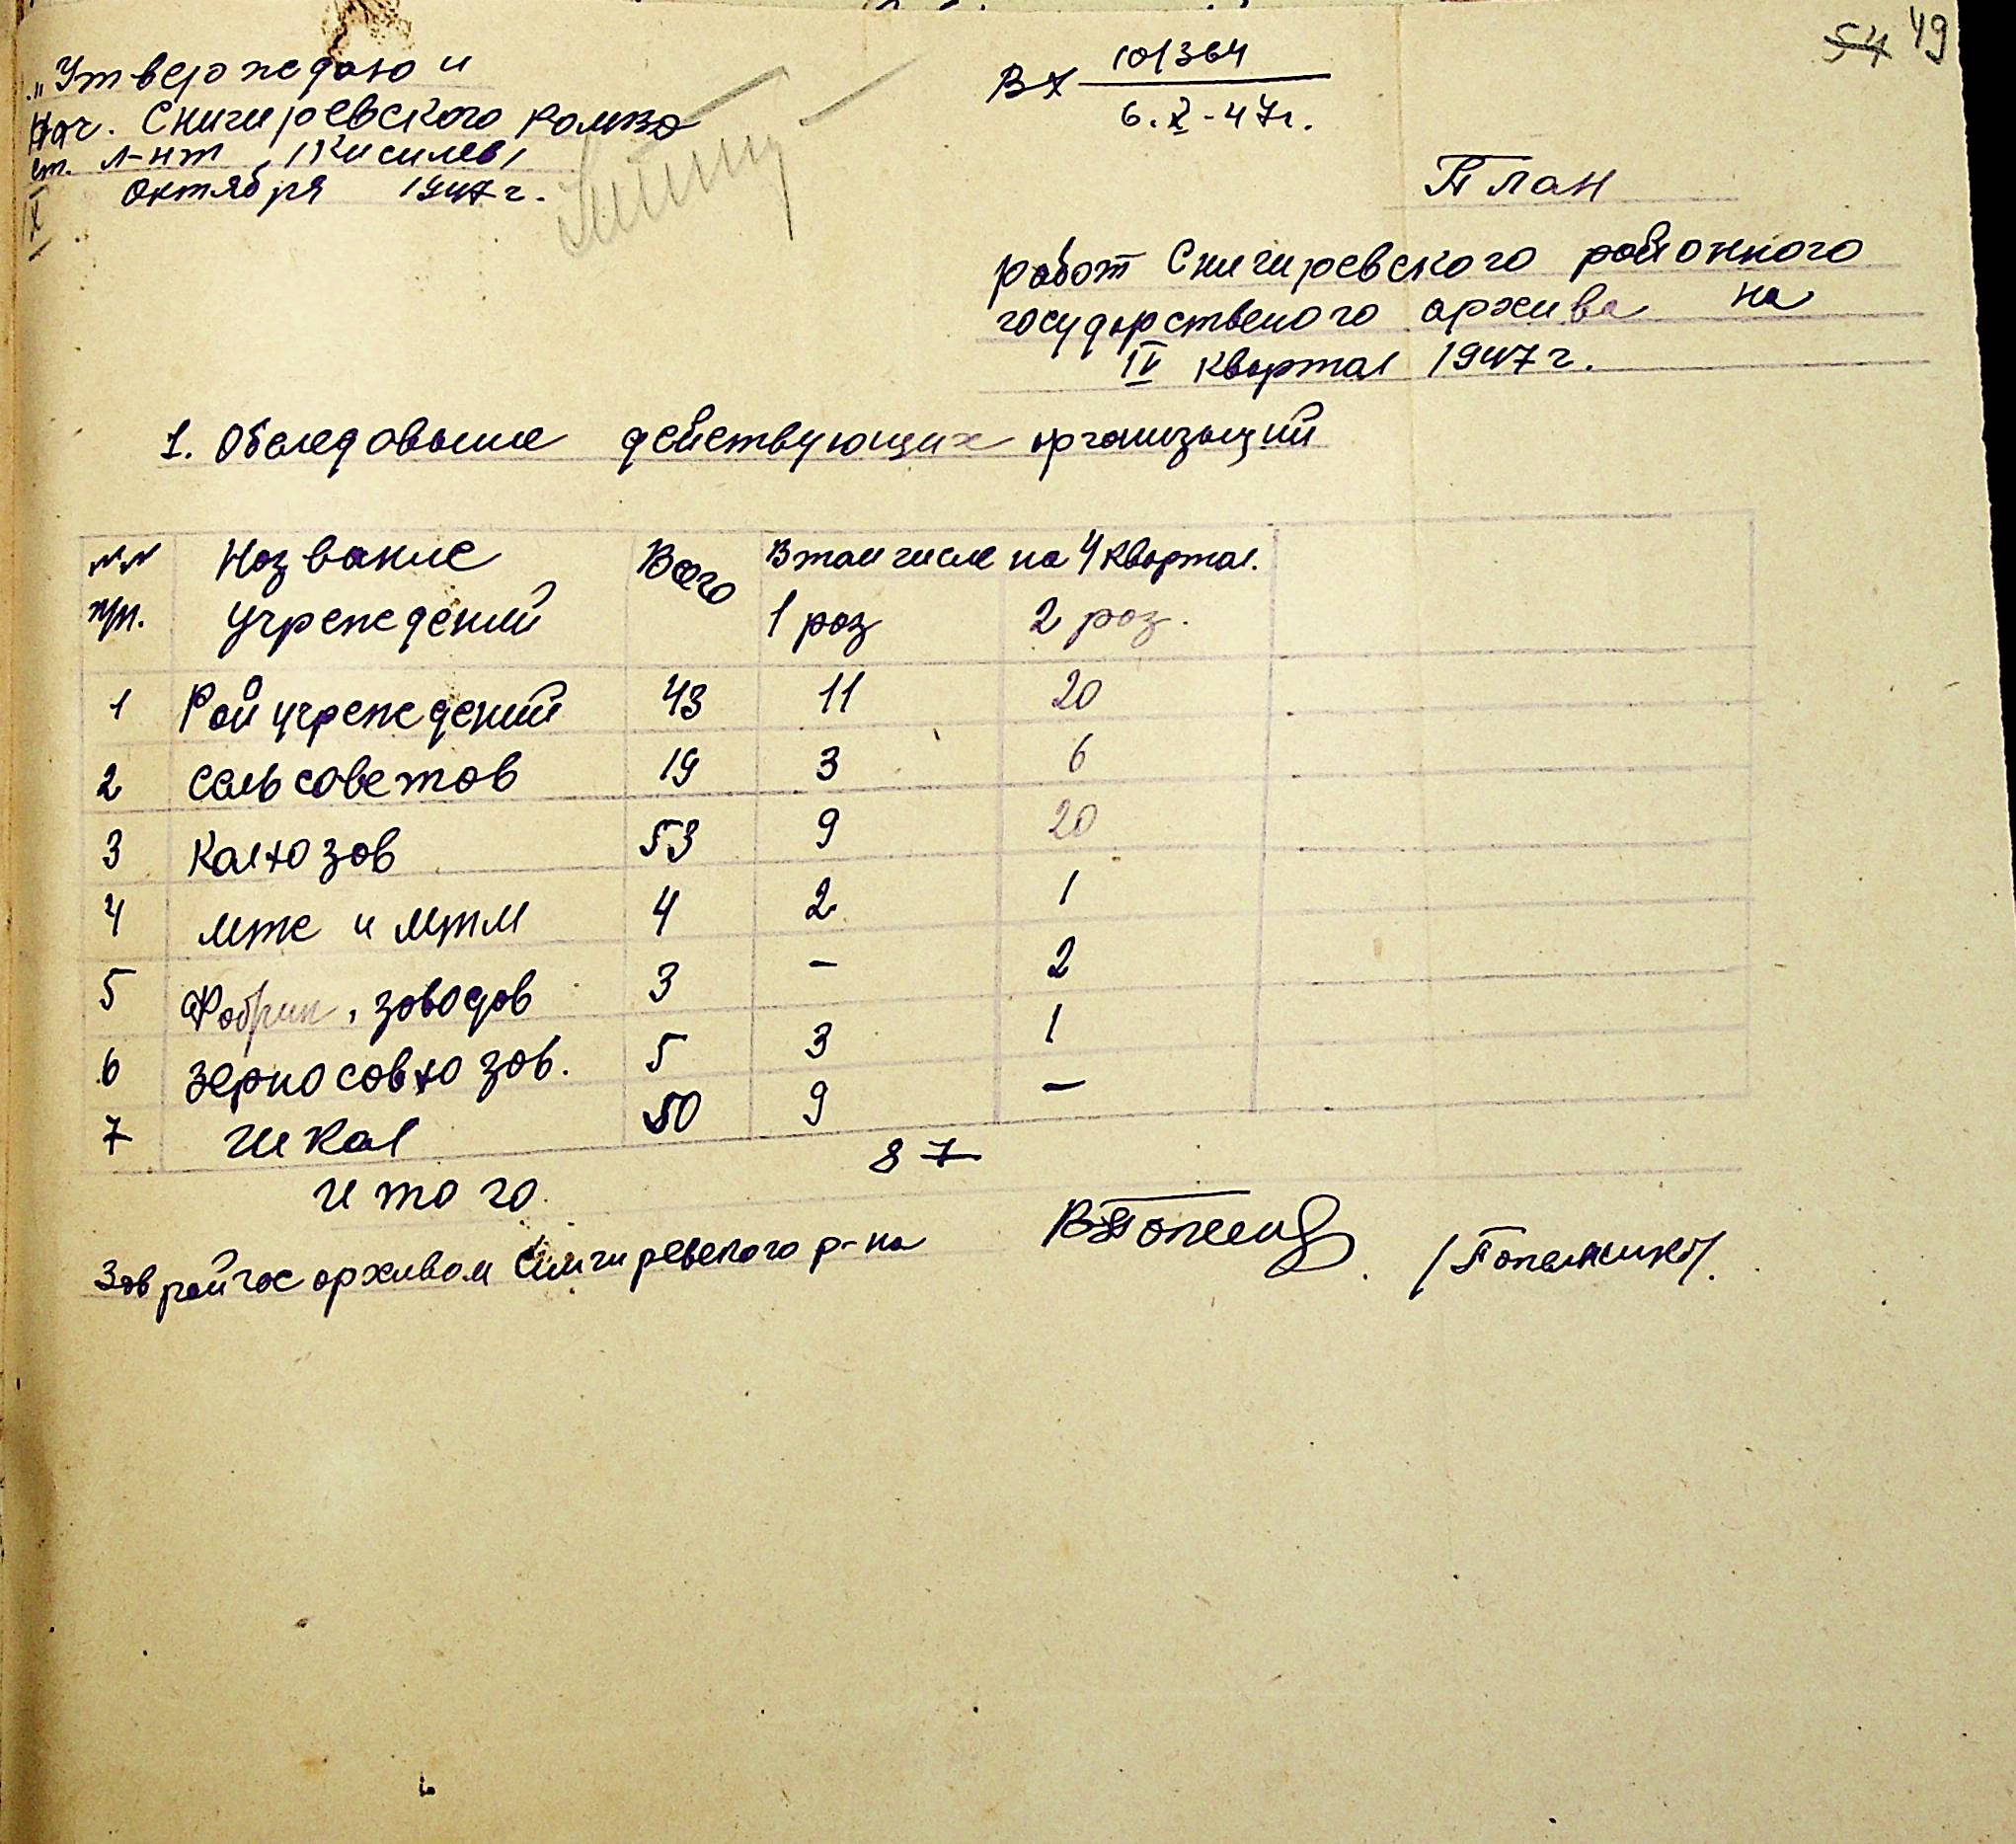 54 49
"Утверождаю"
Нач. Снигиревского РОМВД
ст. л-нт /Кисилев/
X октября 1947 г.
Вх 101364
6.X-47г.
План
работ Снигиревского районного
государственого архива на
IV квартал 1947 г.
1. Обследование действующих организаций
№№ Название Всего В том числе на 4 квартал.
п/п. учреждений 1 раз 2 раз.
1 Райучреждений 43 11 20
2 сельсоветов 19 3 6
3 Колхозов 53 9 20
4 мтс и мтм 4 2 1
5 Фабрик, заводов 3 - 2
6 Зерносовхозов. 5 3 1
7 Школ 50 9 -
Итого. 87
Зав райгосархивом Снигиревского р-на